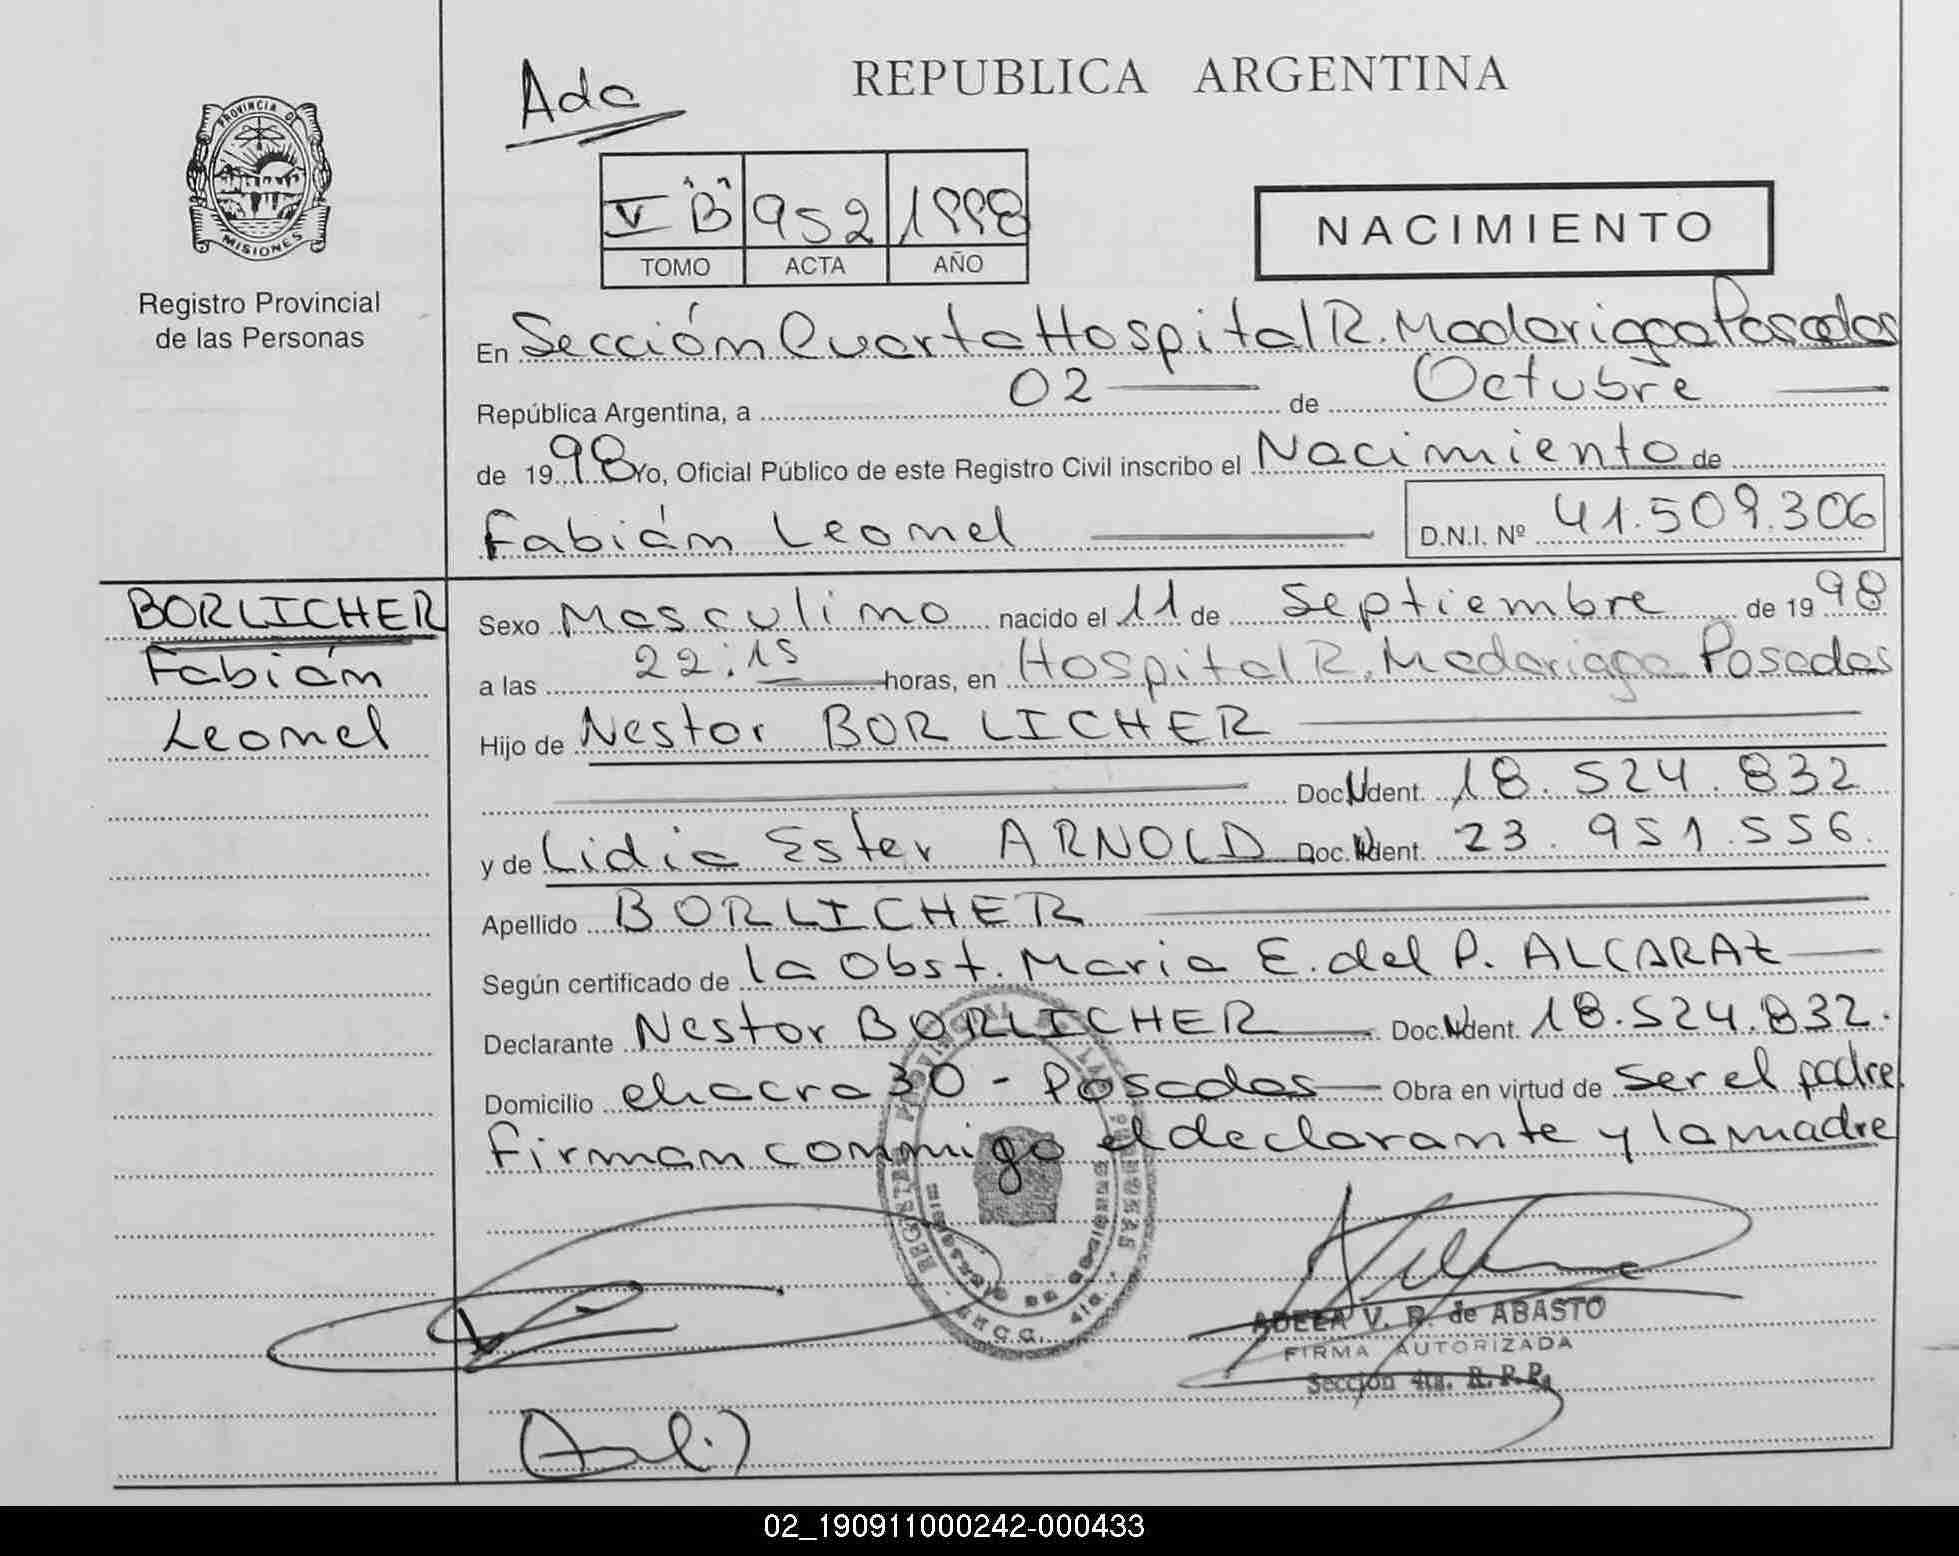 Ada
REPUBLICA ARGENTINA
PROVINCIA D
MISIONES
Registro Provincial
de las Personas
V "B" 952 1998
TOMO ACTA AÑO
NACIMIENTO
En Sección Cuarta Hospital R. Madariaga Posadas
República Argentina, a 02 de Octubre
de 1998 Yo, Oficial Público de este Registro Civil inscribo el Nacimiento de
Fabián Leonel D.N.I. Nº 41.509.306
BORLICHER
Fabián
Leonel
Sexo Masculino nacido el 11 de Septiembre de 1998
a las 22:15 horas, en Hospital R. Madariaga Posadas
Hijo de Nestor BORLICHER
Doc. N Ident. 18.524.832
y de Lidia Ester ARNOLD Doc. N Ident. 23.951.556.
Apellido BORLICHER
Según certificado de la Obst. Maria E. del P. ALCARAZ
Declarante Nestor BORLICHER Doc. N Ident. 18.524.832.
Domicilio chacra 30 - Posadas Obra en virtud de ser el padre
Firman conmigo el declarante y la madre
ADELA V. R. de ABASTO
FIRMA AUTORIZADA
Sección 4ta. R.P.P.
02_190911000242-000433